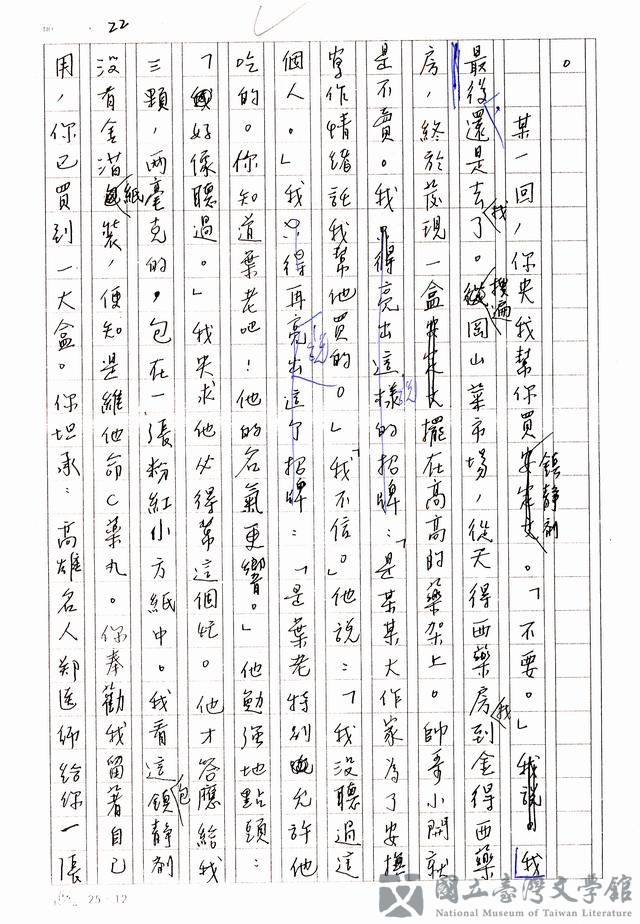 22
。
某一回，你央我幫你買鎮靜劑。「不要。」我
最後，還是去了。我搜遍岡山菜市場，從天得西藥房到金得西藥
房，終於發現一盒擺在高高的藥架上。帥哥小開就
是不賣。我只得亮出這樣的招牌：「是某某大作家為了安撫
寫作情緒託我幫他買的。」「我不信。」他說：「我沒聽過這
個人。」我只得再亮出這個招牌：「是葉老特別允許他
吃的。你知道葉老吧！他的名氣更響。」他勉強地點頭：
「好像聽過。」我央求他必得幫這個忙。他才答應給我
三顆，兩毫克的，包在一張粉紅小方紙中。我看這包鎮靜劑
沒有金箔紙裝，便知是維他命C藥丸。你奉勸我留著自己
用，你已買到一大盒。你坦承：高雄名人鄭医師給你一張
25 12
國立臺灣文學館
National Museum of Taiwan Literature